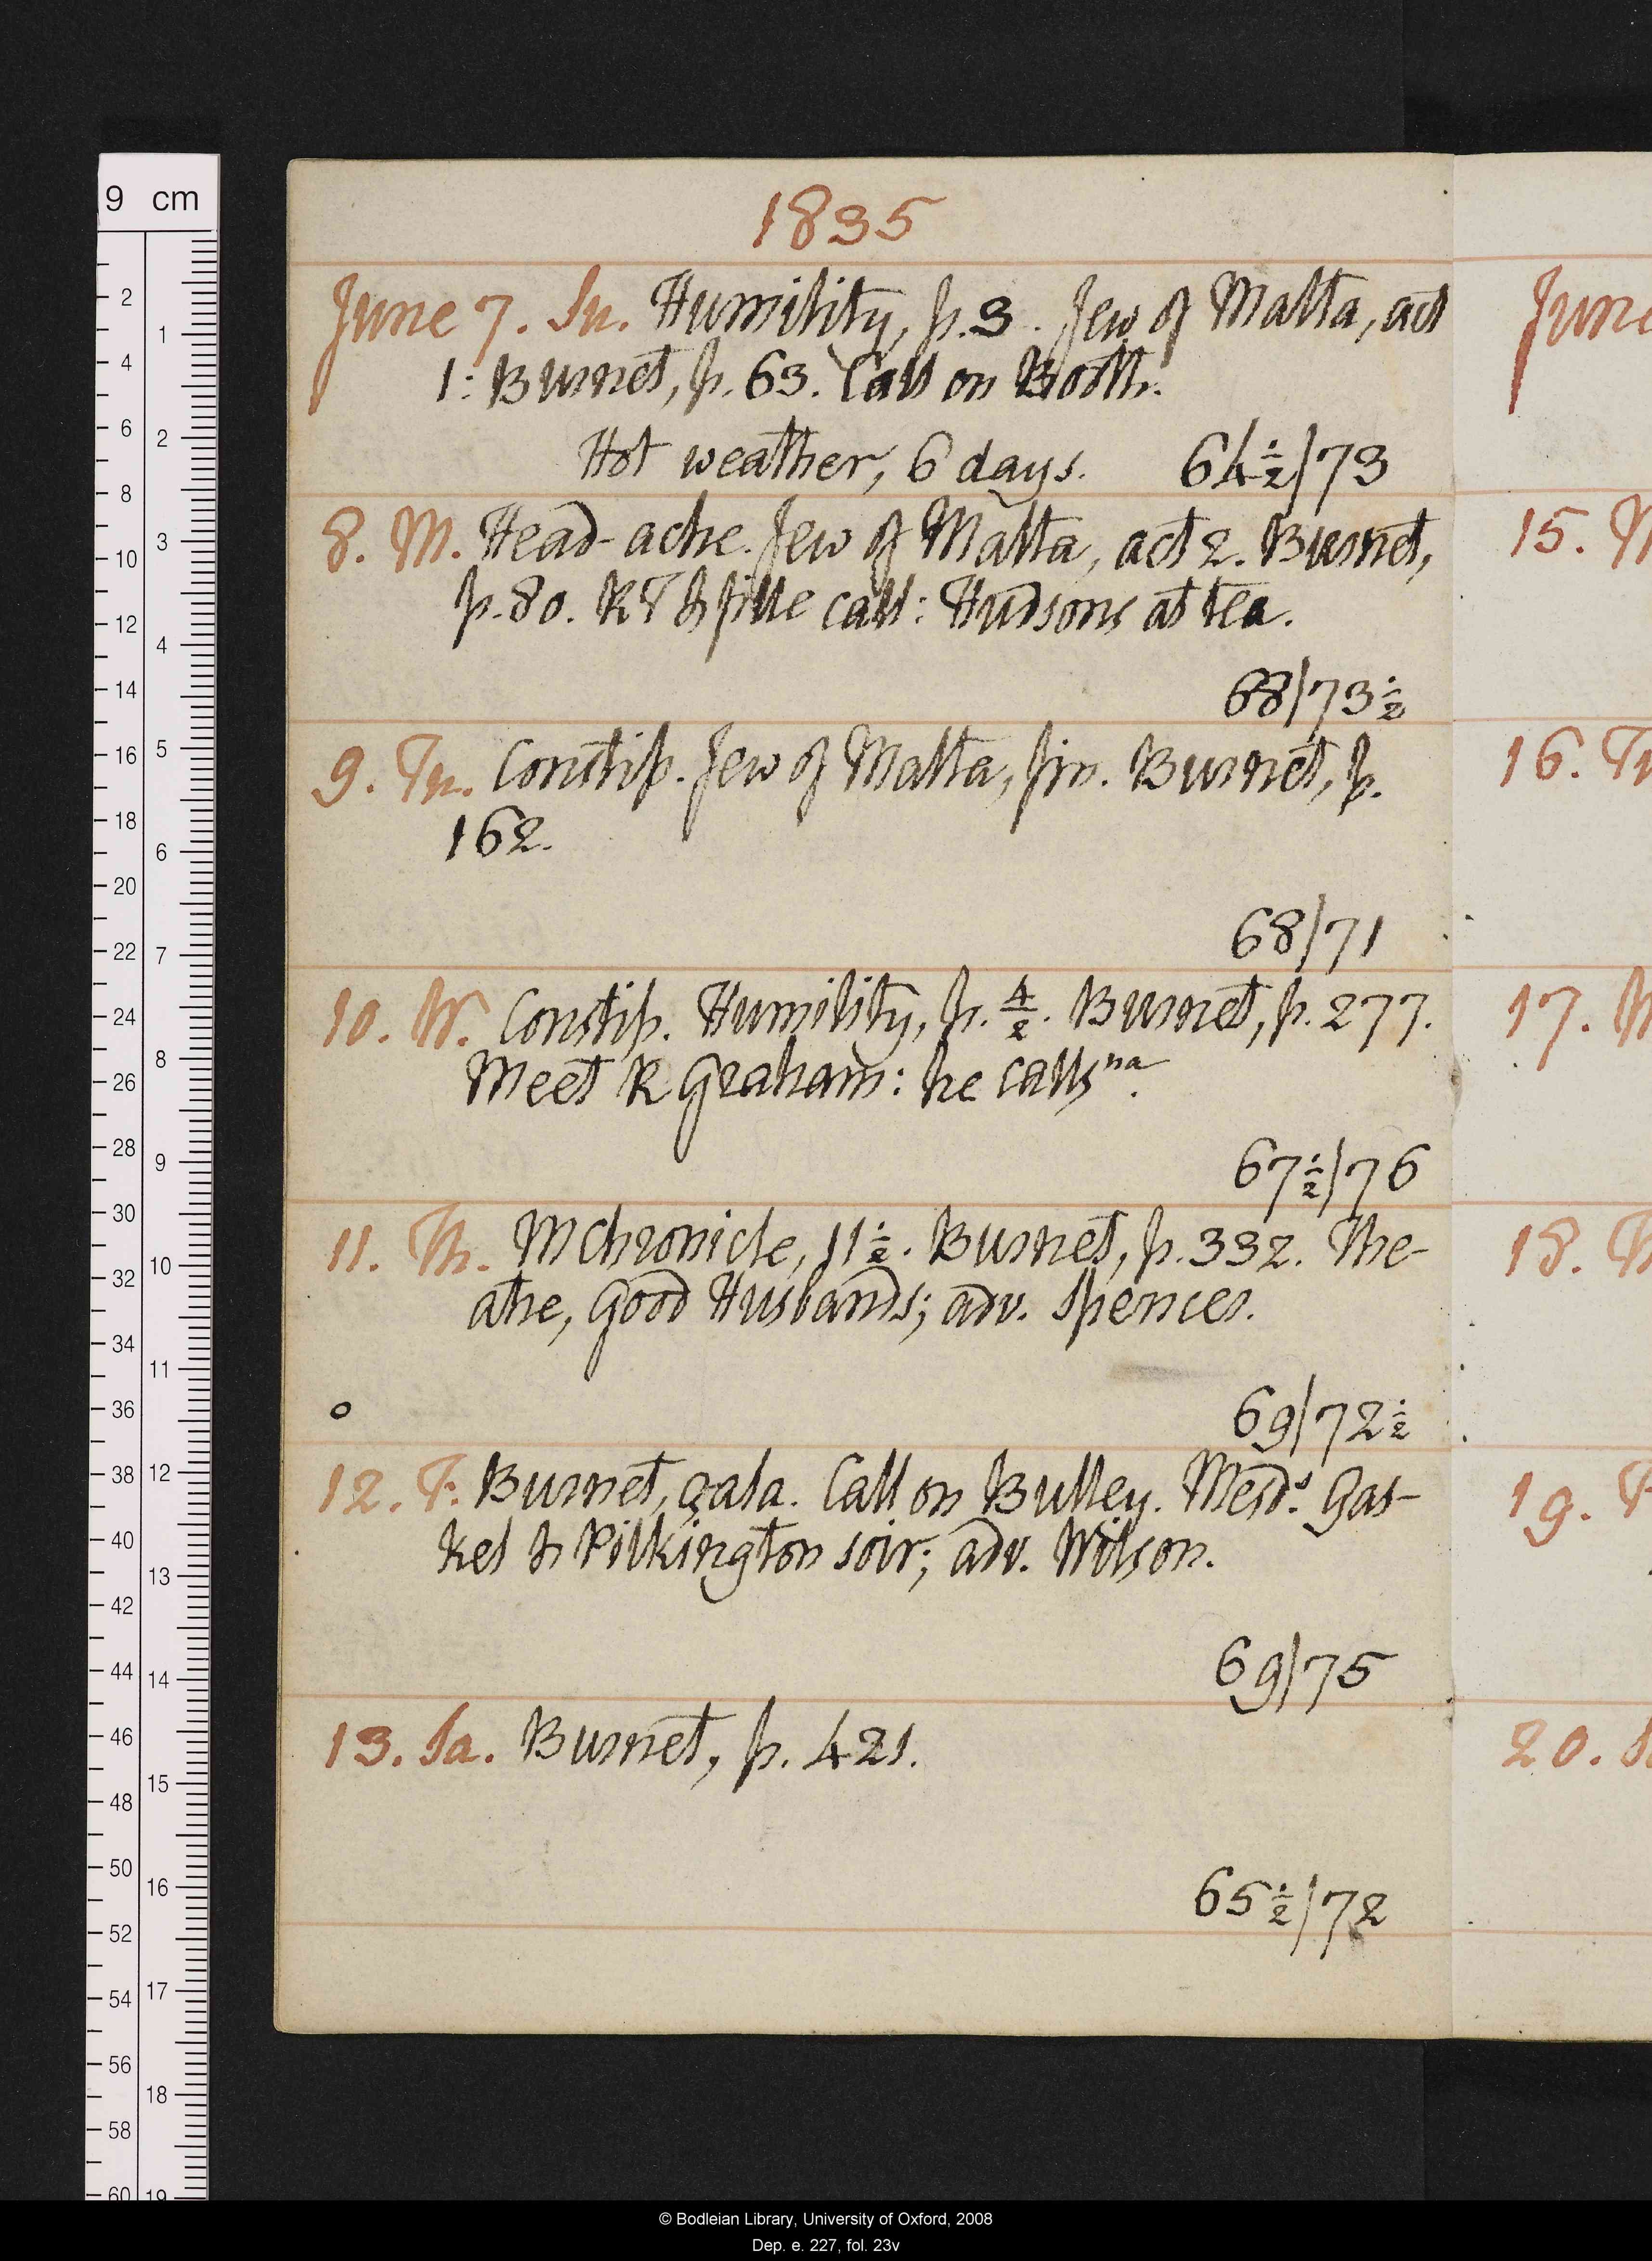 1835
June 7. Su. Humility, p. 3. Jew of Malta, act
1: Burnet, p. 63. Call on Booth.
Hot weather, 6 days. 64½/73
8. M. Head-ache. Jew of Malta, act 2. Burnet,
p. 80. RT & fille call: Hudsons at tea.
68/73½
9. Tu. Constip. Jew of Malta, fin. Burnet, p.
162.
68/71
10. W. Constip. Humility, p. 4/2. Burnet, p. 277.
Meet R Graham: he calls na.
67½/76
11. Th. M Chronicle, 11½. Burnet, p. 332. The-
atre, Good Husbands; adv. Spences.
69/72½
12. F. Burnet, çala. Call on Bulley. Mesds. Gas-
kel & Pilkington soir; adv. Wilson.
69/75
13. Sa. Burnet, p. 421.
65½/72
June
15. M
16. Tu
17. W
18. Th
19. F
20. S
9 cm
2
4
6
8
10
12
14
16
18
20
22
24
26
28
30
32
34
36
38
40
42
44
46
48
50
52
54
56
58
60
1
2
3
4
5
6
7
8
9
10
11
12
13
14
15
16
17
18
19
© Bodleian Library, University of Oxford, 2008
Dep. e. 227, fol. 23v